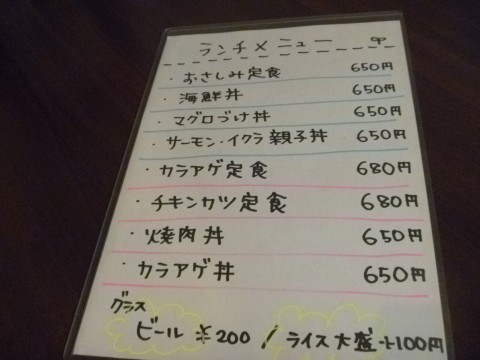 ランチメニュー
・おさしみ定食 650円
・海鮮丼 650円
・マグロづけ丼 650円
・サーモン・イクラ親子丼 650円
・カラアゲ定食 680円
・チキンカツ定食 680円
・焼肉丼 650円
・カラアゲ丼 650円
グラス
ビール ¥200 / ライス大盛+100円